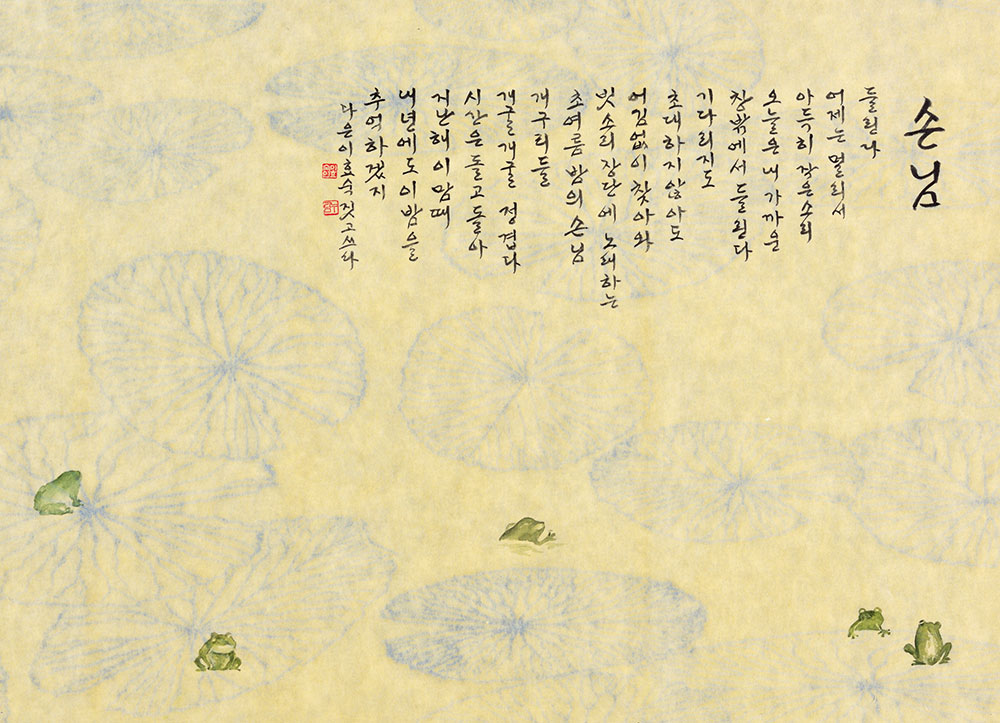 손님
들린다
어제는 멀리서
아득히 작은소리
오늘은 내 가까운
창밖에서 들린다
기다리지도
초대하지 않아도
어김없이 찾아와
빗소리 장단에 노래하는
초여름 밤의 손님
개구리들
개굴개굴 정겹다
시간은 돌고 돌아
지난해 이맘때
내년에도 이 밤을
추억하겠지
다은 이효숙 짓고쓰다